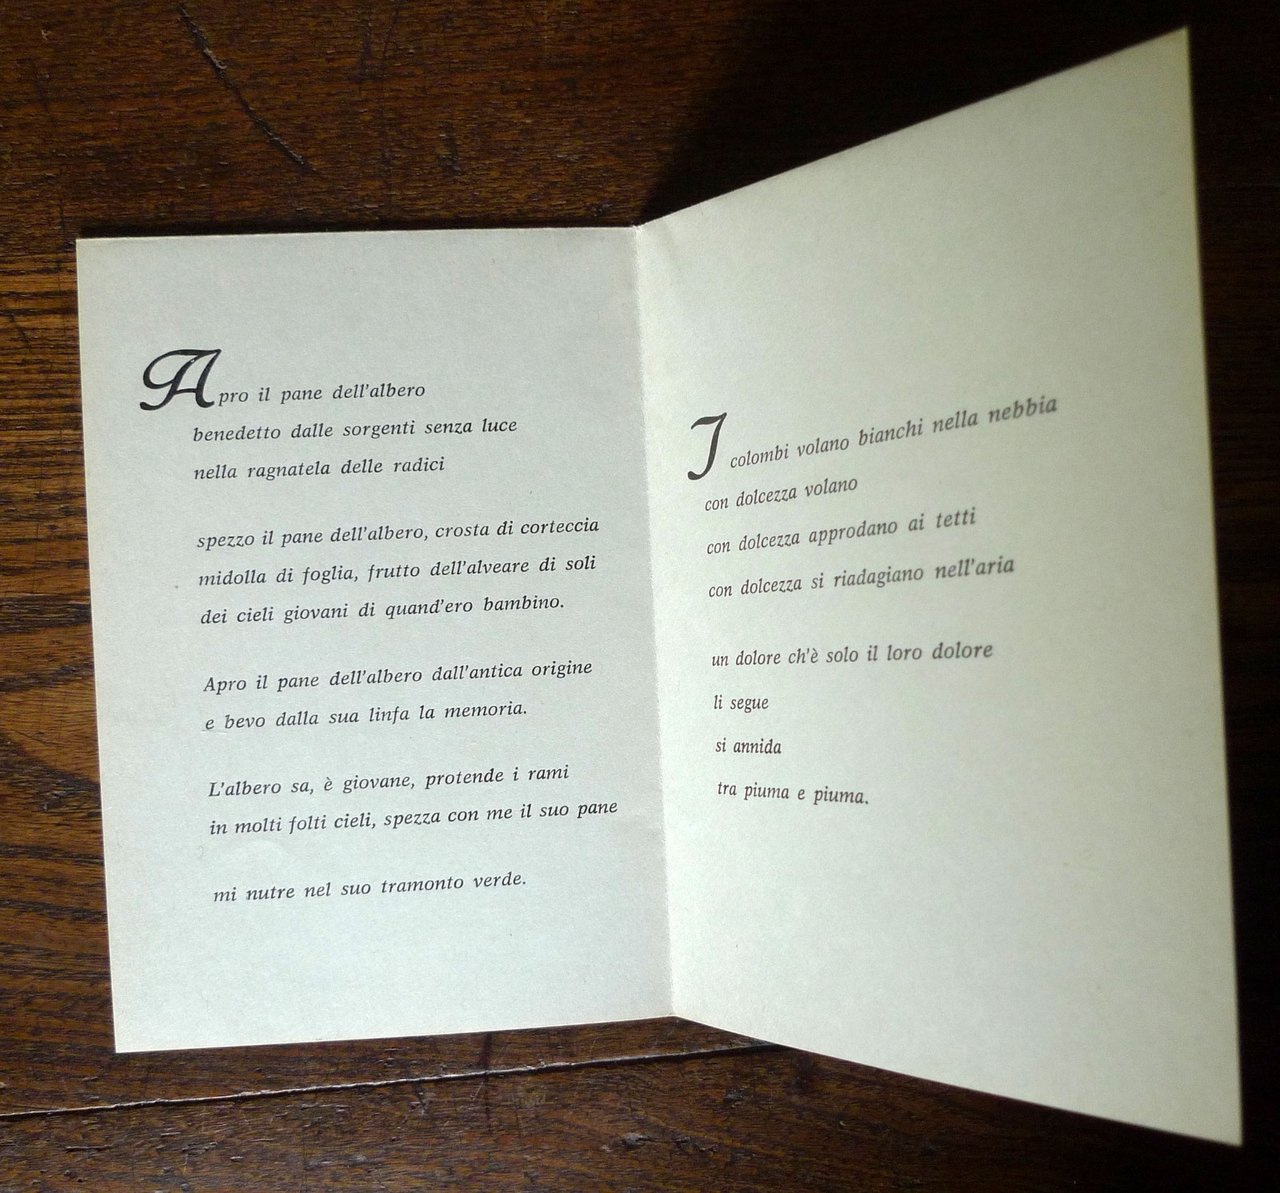 Apro il pane dell'albero
benedetto dalle sorgenti senza luce
nella ragnatela delle radici
spezzo il pane dell'albero, crosta di corteccia
midolla di foglia, frutto dell'alveare di soli
dei cieli giovani di quand'ero bambino.
Apro il pane dell'albero dall'antica origine
e bevo dalla sua linfa la memoria.
L'albero sa, è giovane, protende i rami
in molti folti cieli, spezza con me il suo pane
mi nutre nel suo tramonto verde.
I colombi volano bianchi nella nebbia
con dolcezza volano
con dolcezza approdano ai tetti
con dolcezza si riadagiano nell'aria
un dolore ch'è solo il loro dolore
li segue
si annida
tra piuma e piuma.